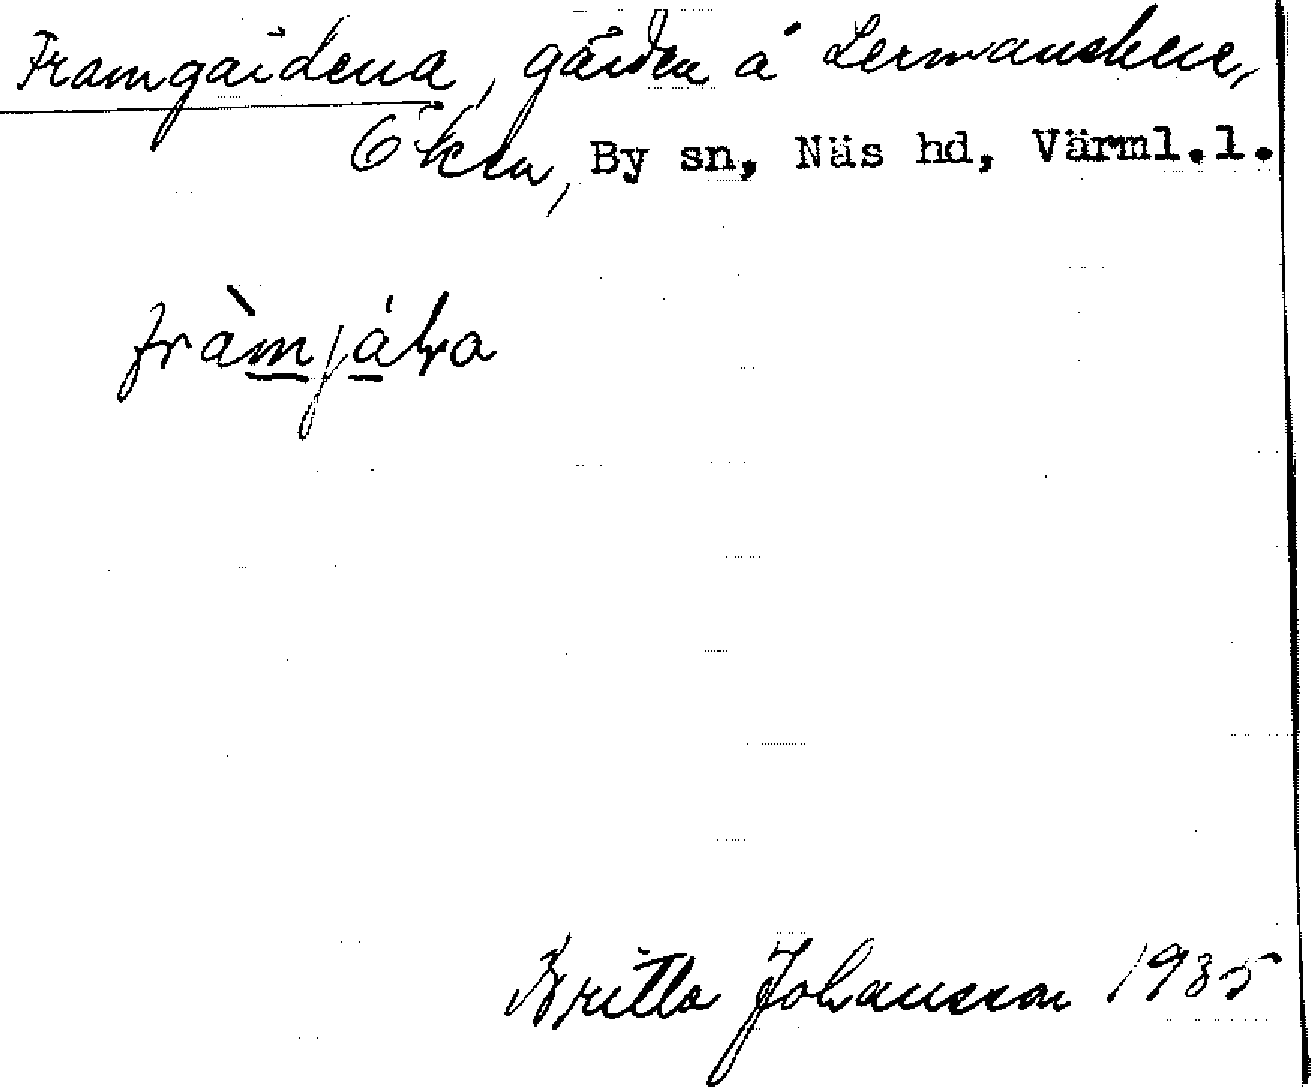 Framgårdena, gården å Lermanskene,
Öken, By sn, Näs hd, Värml.l.
fràmjáɽa
Britta Johansson 1935